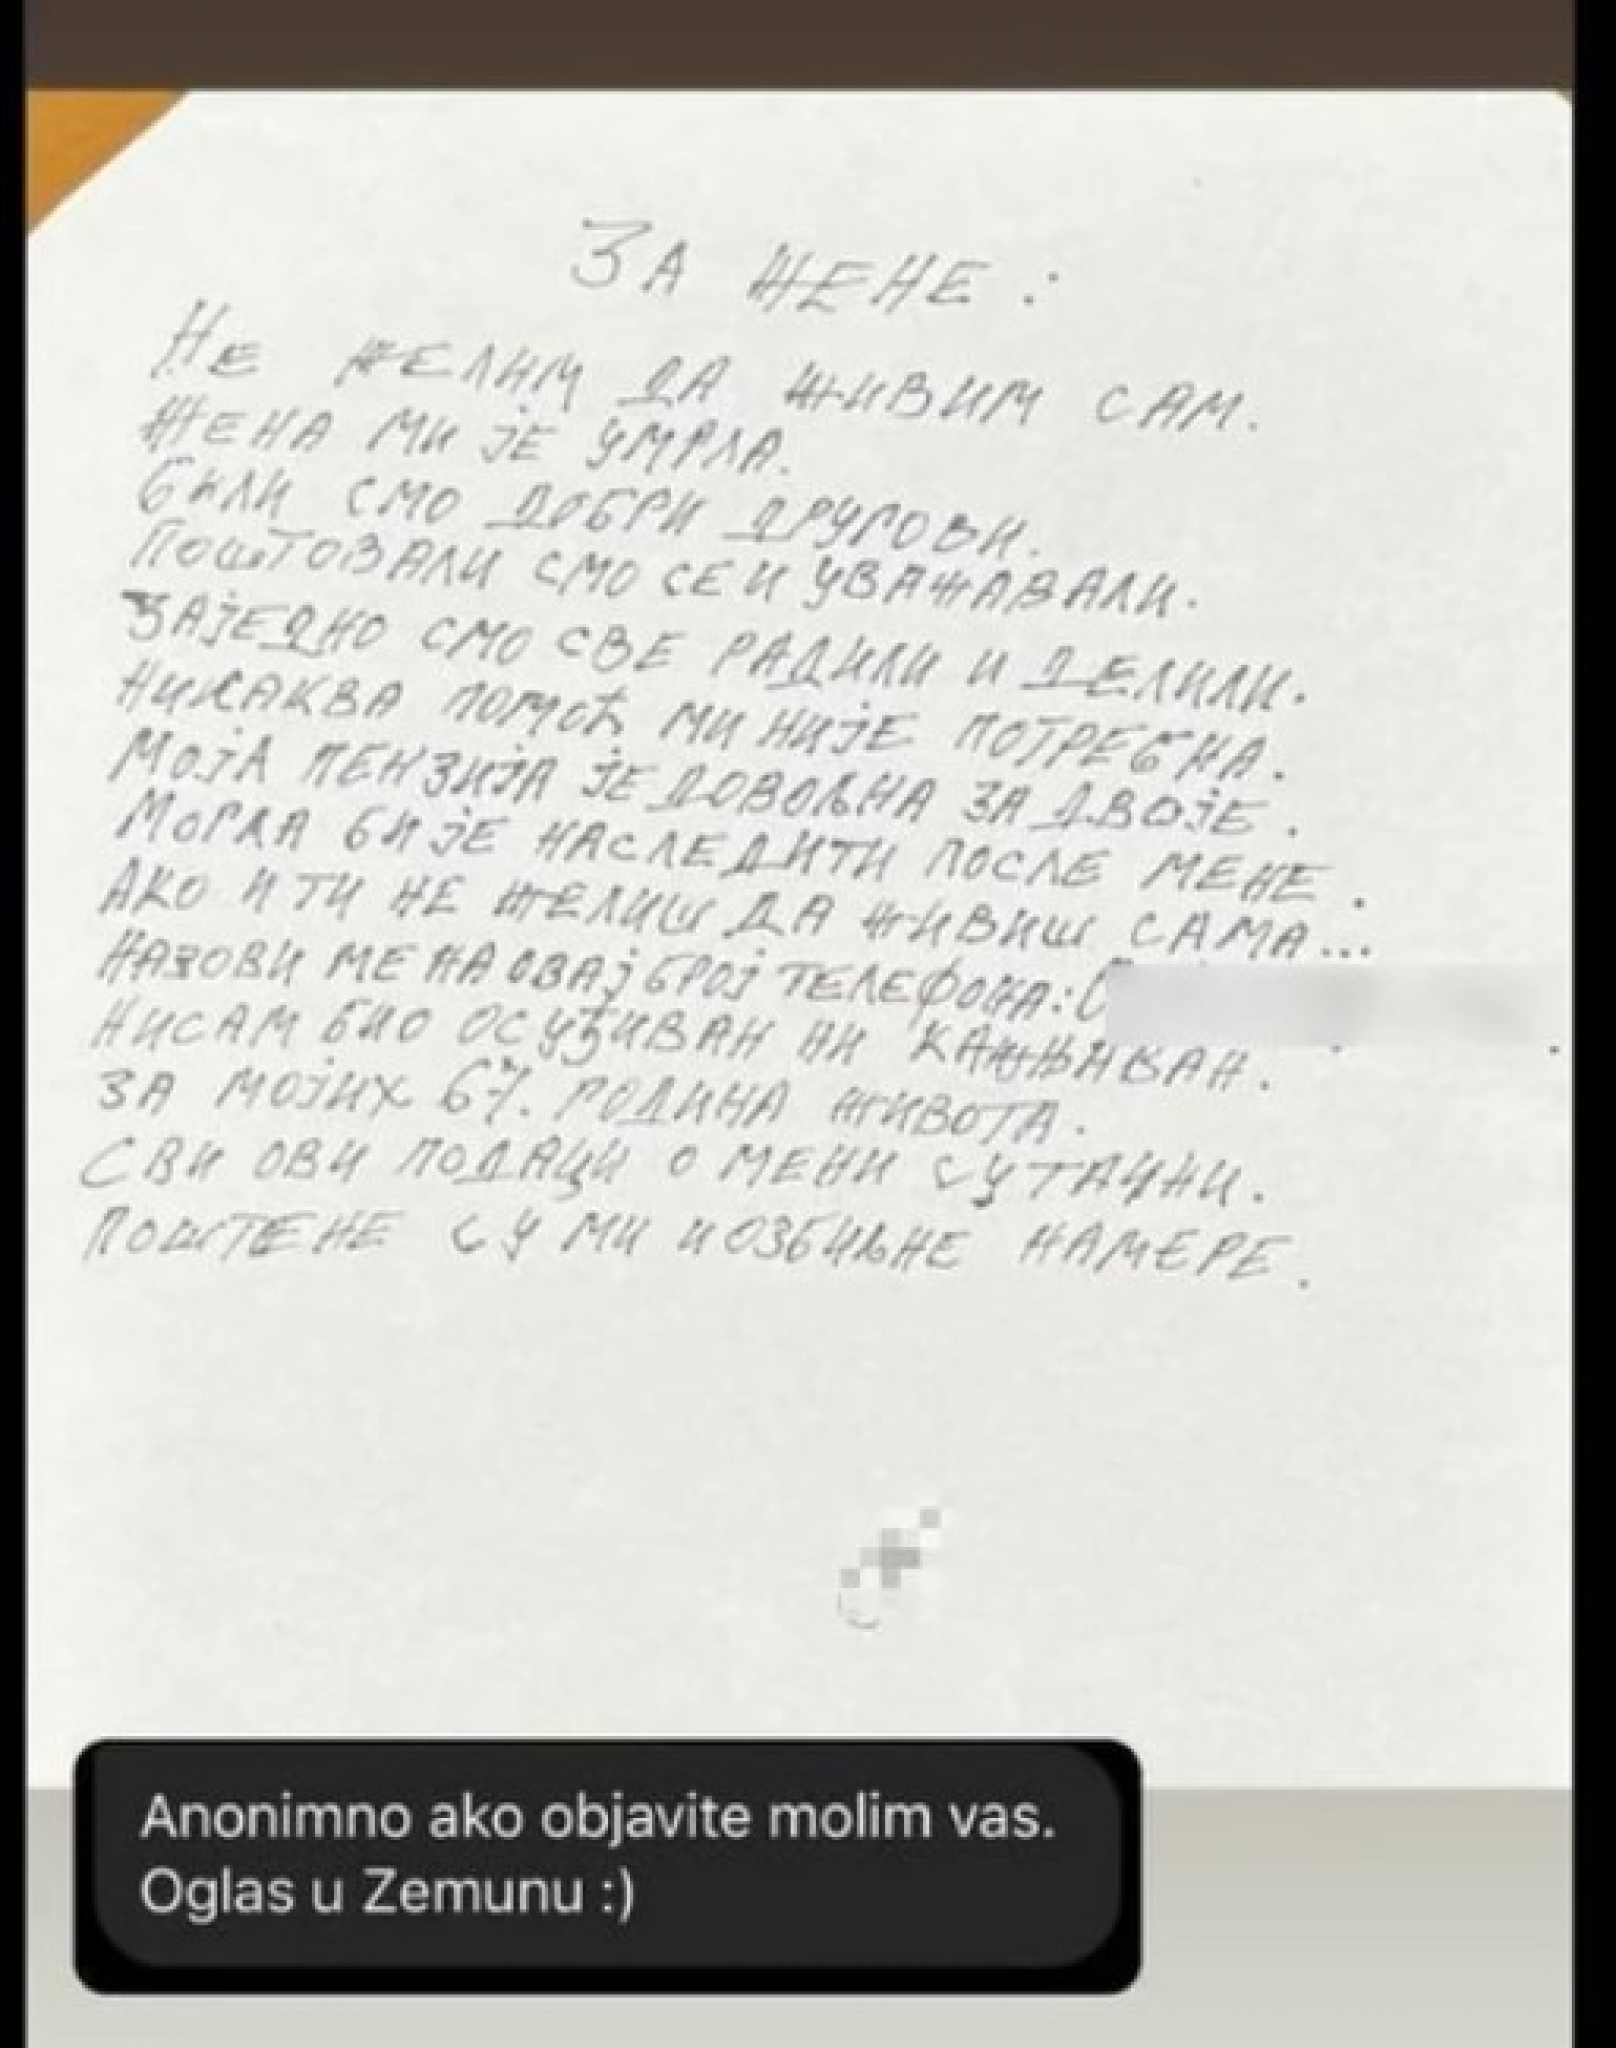 ЗА ЖЕНЕ :
НЕ ЖЕЛИМ ДА ЖИВИМ САМ.
ЖЕНА МИ ЈЕ УМРЛА.
БИЛИ СМО ДОБРИ ДРУГОВИ.
ПОШТОВАЛИ СМО СЕ И УВАЖАВАЛИ.
ЗАЈЕДНО СМО СВЕ РАДИЛИ И ДЕЛИЛИ.
НИКАКВА ПОМОЋ МИ НИЈЕ ПОТРЕБНА.
МОЈА ПЕНЗИЈА ЈЕ ДОВОЉНА ЗА ДВОЈЕ.
МОГЛА БИ ЈЕ НАСЛЕДИТИ ПОСЛЕ МЕНЕ.
АКО И ТИ НЕ ЖЕЛИШ ДА ЖИВИШ САМА...
НАЗОВИ МЕ НА ОВАЈ БРОЈ ТЕЛЕФОНА:
НИСАМ БИО ОСУЂИВАН НИ КАЖЊАВАН.
ЗА МОЈИХ 67. ГОДИНА ЖИВОТА.
СВИ ОВИ ПОДАЦИ О МЕНИ СУ ТАЧНИ.
ПОШТЕНЕ СУ МИ И ОЗБИЉНЕ НАМЕРЕ.
Anonimno ako objavite molim vas.
Oglas u Zemunu :)